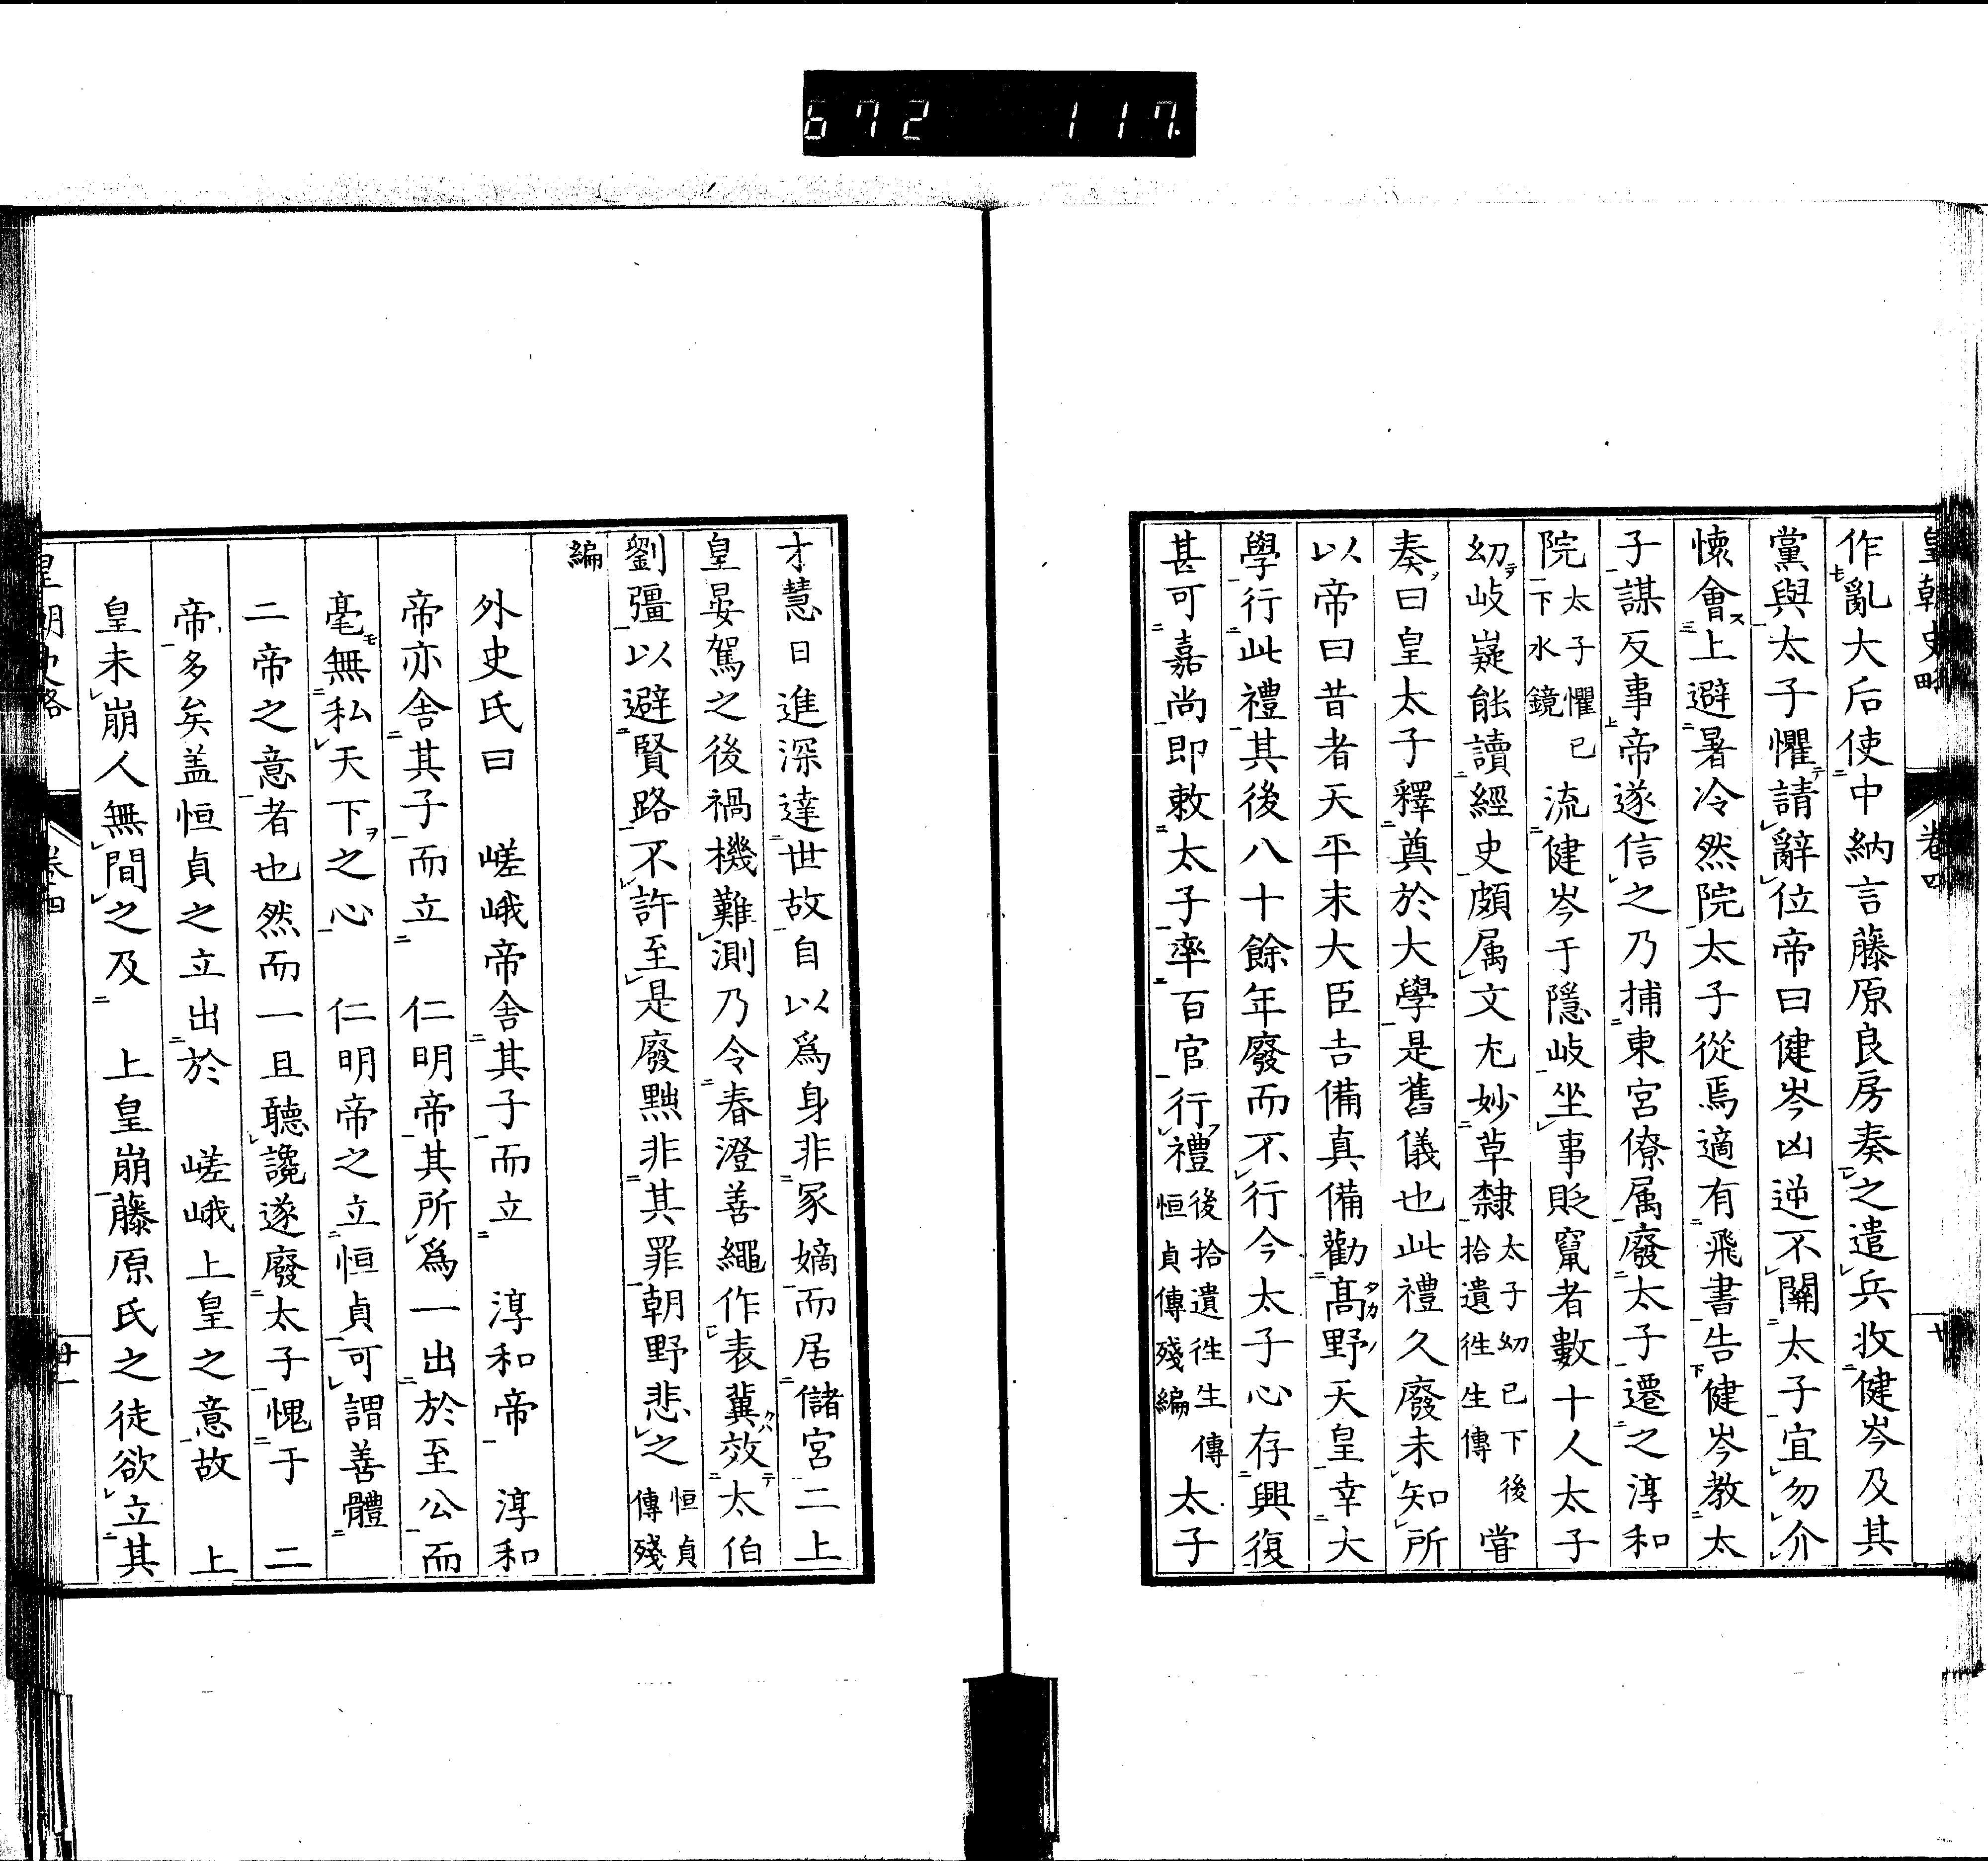 672 117
皇朝史略 卷四 廿
作亂大后使中納言藤原良房奏之遣兵收健岑及其
黨與太子懼請辭位帝曰健岑凶逆不關太子宜勿介
懷會上避暑冷然院太子從焉適有飛書告健岑教太
子謀反事帝遂信之乃捕東宮僚属廢太子遷之淳和
院太子懼已下水鏡流健岑于隱岐坐事貶竄者數十人太子
幼岐嶷能讀經史頗属文尤妙草隸太子幼已下後拾遺徃生傳嘗
奏曰皇太子釋奠於大學是舊儀也此禮久廢未知所
以帝曰昔者天平末大臣吉備真備勸髙野天皇幸大
學行此禮其後八十餘年廢而不行今太子心存興復
甚可嘉尚即敕太子率百官行禮後拾遺徃生傳恒貞傳殘編太子
才慧日進深達世故自以爲身非冢嫡而居儲宮二上
皇晏駕之後禍機難測乃令春澄善繩作表冀效太伯
劉彊以避賢路不許至是廢黜非其罪朝野悲之恒貞傳殘
編
外史氏曰 嵯峨帝舍其子而立 淳和帝 淳和
帝亦舍其子而立 仁明帝其所爲一出於至公而
毫無私天下之心 仁明帝之立恒貞可謂善體
二帝之意者也然而一旦聽讒遂廢太子愧于 二
帝多矣盖恒貞之立出於 嵯峨上皇之意故 上
皇未崩人無間之及 上皇崩藤原氏之徒欲立其
皇朝史略 卷四 廿一